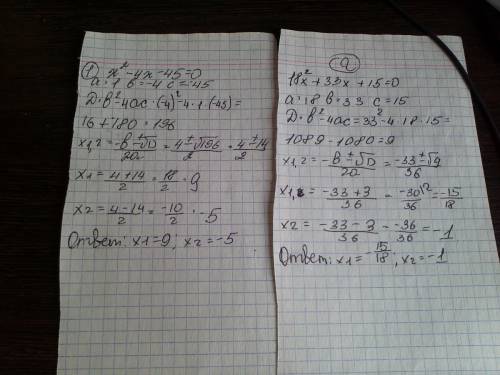 ① x² - 4x - 45 = 0
a = 1 в = -4 c = -45
D = в² - 4ac = (-4)² - 4 · 1 · (-45) =
16 + 180 = 196
x1,2 = -в ± √D / 2a = 4 ± √196 / 2 = 4 ± 14 / 2
x1 = 4 + 14 / 2 = 18 / 2 = 9
x2 = 4 - 14 / 2 = -10 / 2 = -5
Ответ: x1 = 9; x2 = -5
②
18x² + 33x + 15 = 0
a = 18 в = 33 c = 15
D = в² - 4ac = 33² - 4 · 18 · 15 =
1089 - 1080 = 9
x1,2 = -в ± √D / 2a = -33 ± √9 / 36
x1 = -33 + 3 / 36 = -30 / 36 = -15 / 18
x2 = -33 - 3 / 36 = -36 / 36 = -1
Ответ: x1 = -15 / 18; x2 = -1